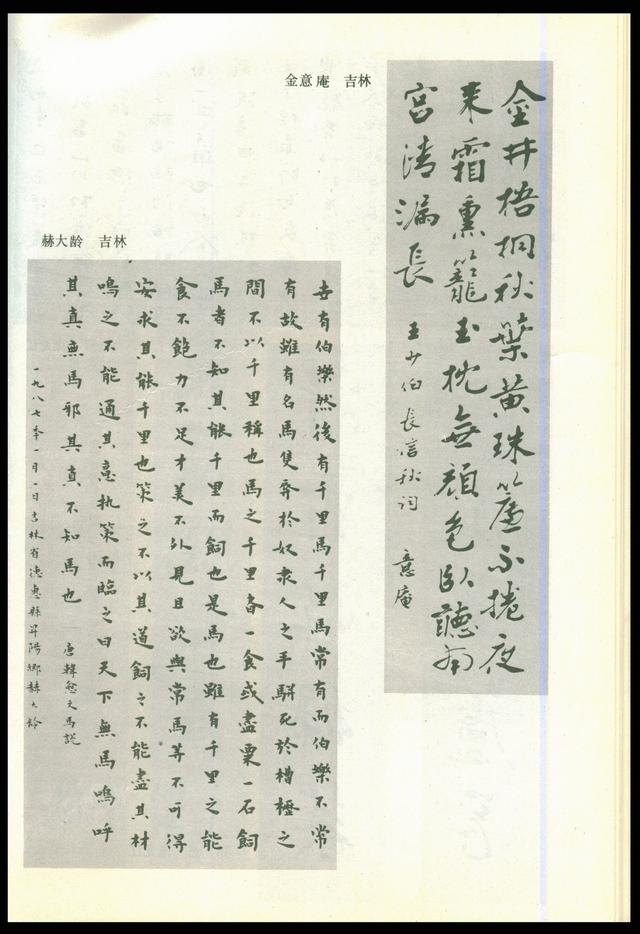 金意庵 吉林
金井梧桐秋葉黄珠簾不捲夜
来霜熏籠玉枕無顔色卧聽南
宮清漏長 王少伯長信秋詞 意庵
赫大龄 吉林
世有伯樂然後有千里馬千里馬常有而伯樂不常
有故雖有名馬隻辱於奴隶人之手駢死於槽櫪之
間不以千里稱也馬之千里者一食或盡粟一石飼
馬者不知其能千里而飼也是馬也雖有千里之能
食不飽力不足才美不外見且欲與常馬等不可得
安求其能千里也策之不以其道飼之不能盡其材
鳴之不能通其意執策而臨之曰天下無馬嗚呼
其真無馬邪其真不知馬也 唐韓愈文馬説
一九八七年一月一日吉林省德惠縣昇陽鄉赫大龄